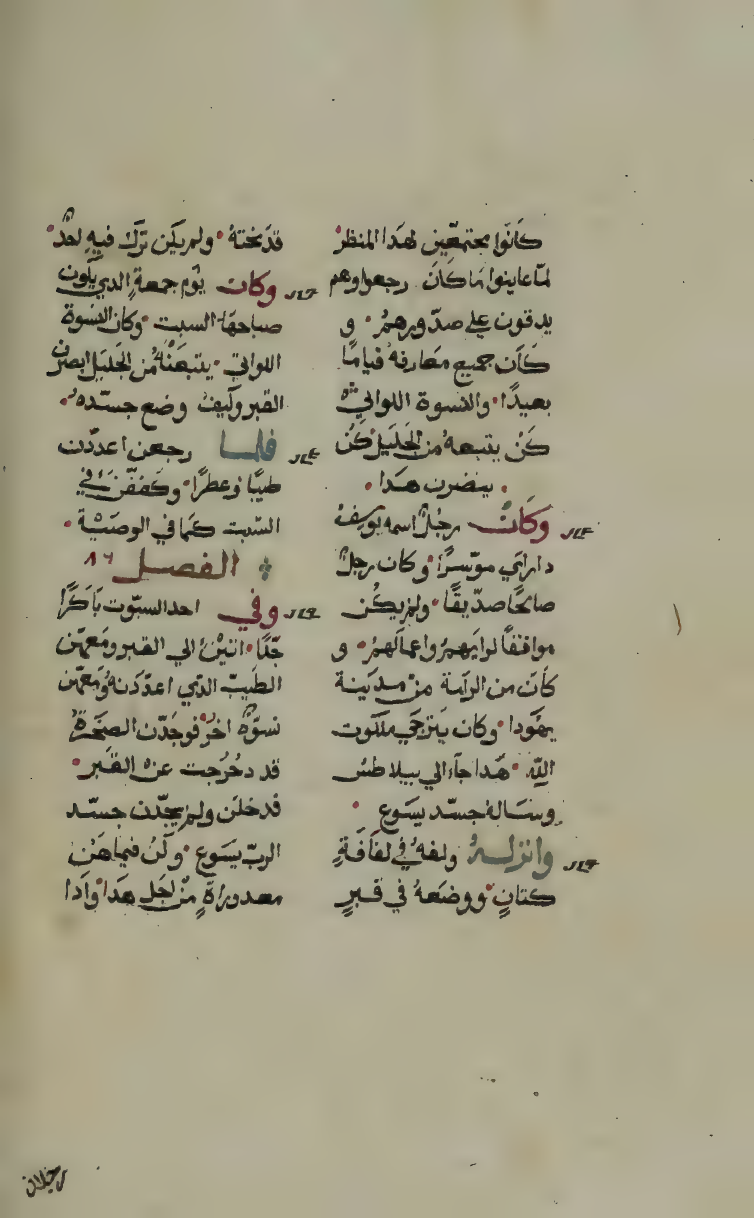 كانوا مجتمعين لهذا المنظر
لما عاينوا ما كان رجعوا وهم
يدقون علي صدورهم و
كان جميع معارفه قياما
بعيدًا والنسوة اللواتي
كن يتبعنه من الجليل كن
ينضرن هدا
وكان رجلٌ اسمه يوسف
داراي موسرًا وكان رجلٌ
صالحًا صديقًا ولم يكن
موافقًا لرايهم واعمالهم و
كان من الرامة من مدينة
يهودا وكان يترجي ملكوت
الله هدا جاء الي بيلاطس
وساله جسد يسوع
وانزله ولفه في لفافةٍ
كتانٍ ووضعه في قبرٍ
قد نحته ولم يكن ترك فيه احدٌ
وكان يوم جمعةٍ الدي يكون
صباحها السبت وكان النسوة
اللواتي يتبعنه من الجليل ابصرن
القبر وكيف وضع جسده
فلما رجعن اعددن
طيبًا وعطرًا وكففن في
السبت كما في الوصية
الفصل ٨٦
وفي احد السبوت باكرًا
جدًا اتين الي القبر ومعهن
الطيب الدي اعددنه ومعهن
نسوة اخر فوجدن الصخرة
قد دحرجت عن القبر
فدخلن ولم يجدن جسد
الرب يسوع وكن فيما هن
من اجل هدا وادا
رجلان